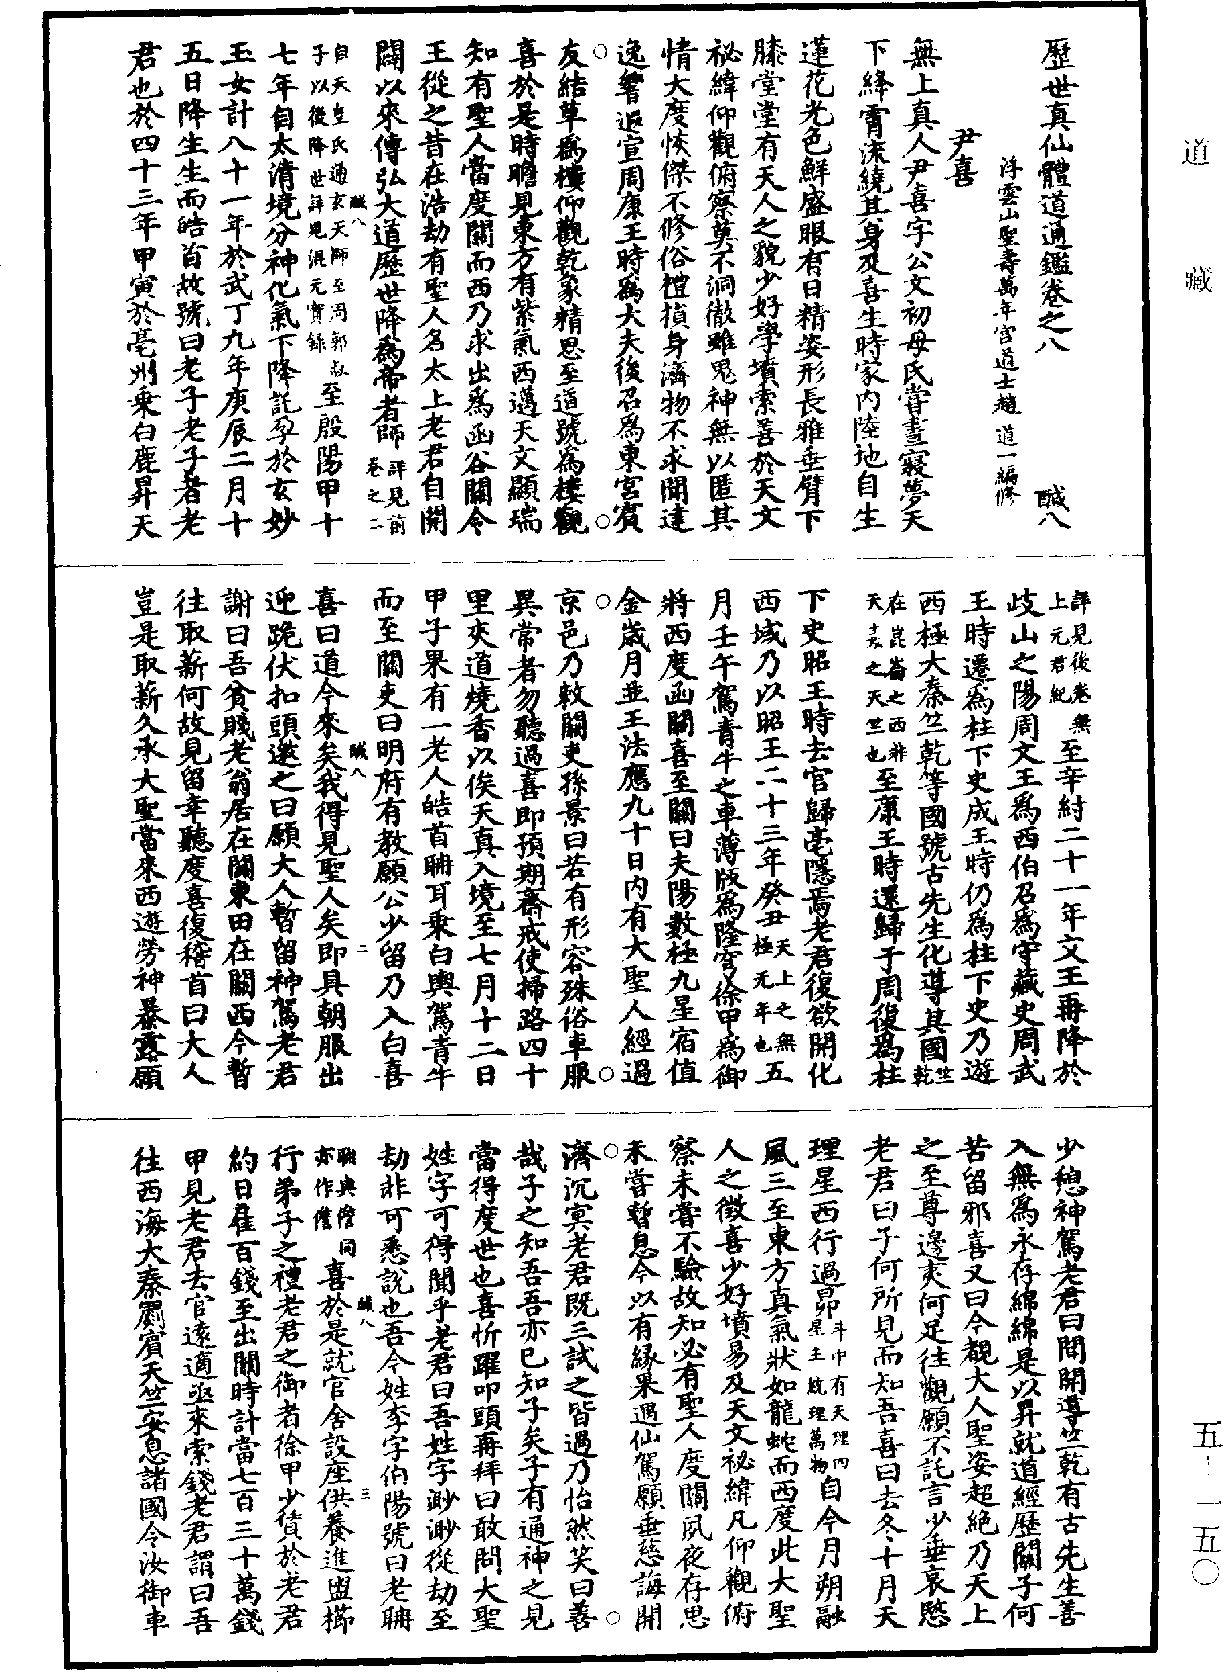 道藏
五-一五〇
歷世真仙體道通鑑卷之八 醎八
浮雲山聖壽萬年宮道士趙道一編修
尹喜
無上真人尹喜字公文初母氏嘗晝寢夢天
下絳霄流繞其身及喜生時家內陸地自生
蓮花光色鮮盛眼有日精姿形長雅垂臂下
膝堂堂有天人之貌少好學墳索善於天文
祕緯仰觀俯察莫不洞徹雖鬼神無以匿其
情大度恢傑不修俗禮損身濟物不求聞達
逸響遐宣周康王時為大夫後召為東宮賓
友結草為樓仰觀乾象精思至道號為樓觀
喜於是時瞻見東方有紫氣西邁天文顯瑞
知有聖人當度關而西乃求出為函谷關令
王從之昔在浩劫有聖人名太上老君自開
闢以來傳弘大道歷世降為帝者師詳見前卷之二
醎八
自天皇氏通玄天師至周郭叔子以後降世詳見混元實錄至殷陽甲十
七年自太清境分神化氣下降託孕於玄妙
玉女計八十一年於武丁九年庚辰二月十
五日降生生而皓首故號曰老子老子者老
君也於四十三年甲寅於亳州乘白鹿昇天
詳見後卷無上元君紀至辛紂二十一年文王再降於
岐山之陽周文王為西伯召為守藏史周武
王時遷為柱下史成王時仍為柱下史乃遊
西極大秦竺乾等國號古先生化導其國竺乾
在崑崙之西非天之天竺也至康王時還歸于周復為柱
下史昭王時去官歸亳隱焉老君復欲開化
西域乃以昭王二十三年癸丑天上之無極元年也五
月壬午駕青牛之車薄版為隆穹徐甲為御
將西度函關喜至關曰夫陽數極九星宿值
金歲月並王法應九十日內有大聖人經過
京邑乃敕關吏孫景曰若有形容殊俗車服
異常者勿聽過喜即預期齋戒使掃路四十
里夾道燒香以俟天真入境至七月十二日
甲子果有一老人皓首聃耳乘白輿駕青牛
而至關吏曰明府有教願公少留乃入白喜
醎八 二
喜曰道今來矣我得見聖人矣即具朝服出
迎跪伏扣頭邀之曰願大人暫留神駕老君
謝曰吾貧賤老翁居在關東田在關西今暫
往取薪何故見留幸聽度喜復稽首曰大人
豈是取薪久承大聖當來西遊勞神暴露願
少憩神駕老君曰聞開導竺乾有古先生善
入無為永存綿綿是以昇就道經歷關子何
苦留邪喜又曰今覩大人聖姿超絕乃天上
之至尊邊夷何足往觀願不託言少垂哀愍
老君曰子何所見而知吾喜曰去冬十月天
理星西行過昴斗中有天理四星主統理萬物自今月朔融
風三至東方真氣狀如龍蛇而西度此大聖
人之徵喜少好墳易及天文祕緯凡仰觀俯
察未嘗不驗故知必有聖人度關夙夜存思
未嘗暫息今以有緣果遇仙駕願垂慈誨開
濟沉冥老君既三試之皆過乃怡然笑曰善
哉子之知吾吾亦已知子矣子有通神之見
當得度世也喜忻躍叩頭再拜曰敢問大聖
姓字可得聞乎老君曰吾姓字渺渺從劫至
劫非可悉說也吾今姓李字伯陽號曰老聃
醎八 三
聃與儋同亦作儋喜於是就官舍設座供養進盥櫛
行弟子之禮老君之御者徐甲少賃於老君
約日雇百錢至出關時計當七百三十萬錢
甲見老君去官遠適亟來索錢老君謂曰吾
往西海大秦罽賓天竺安息諸國令汝御車